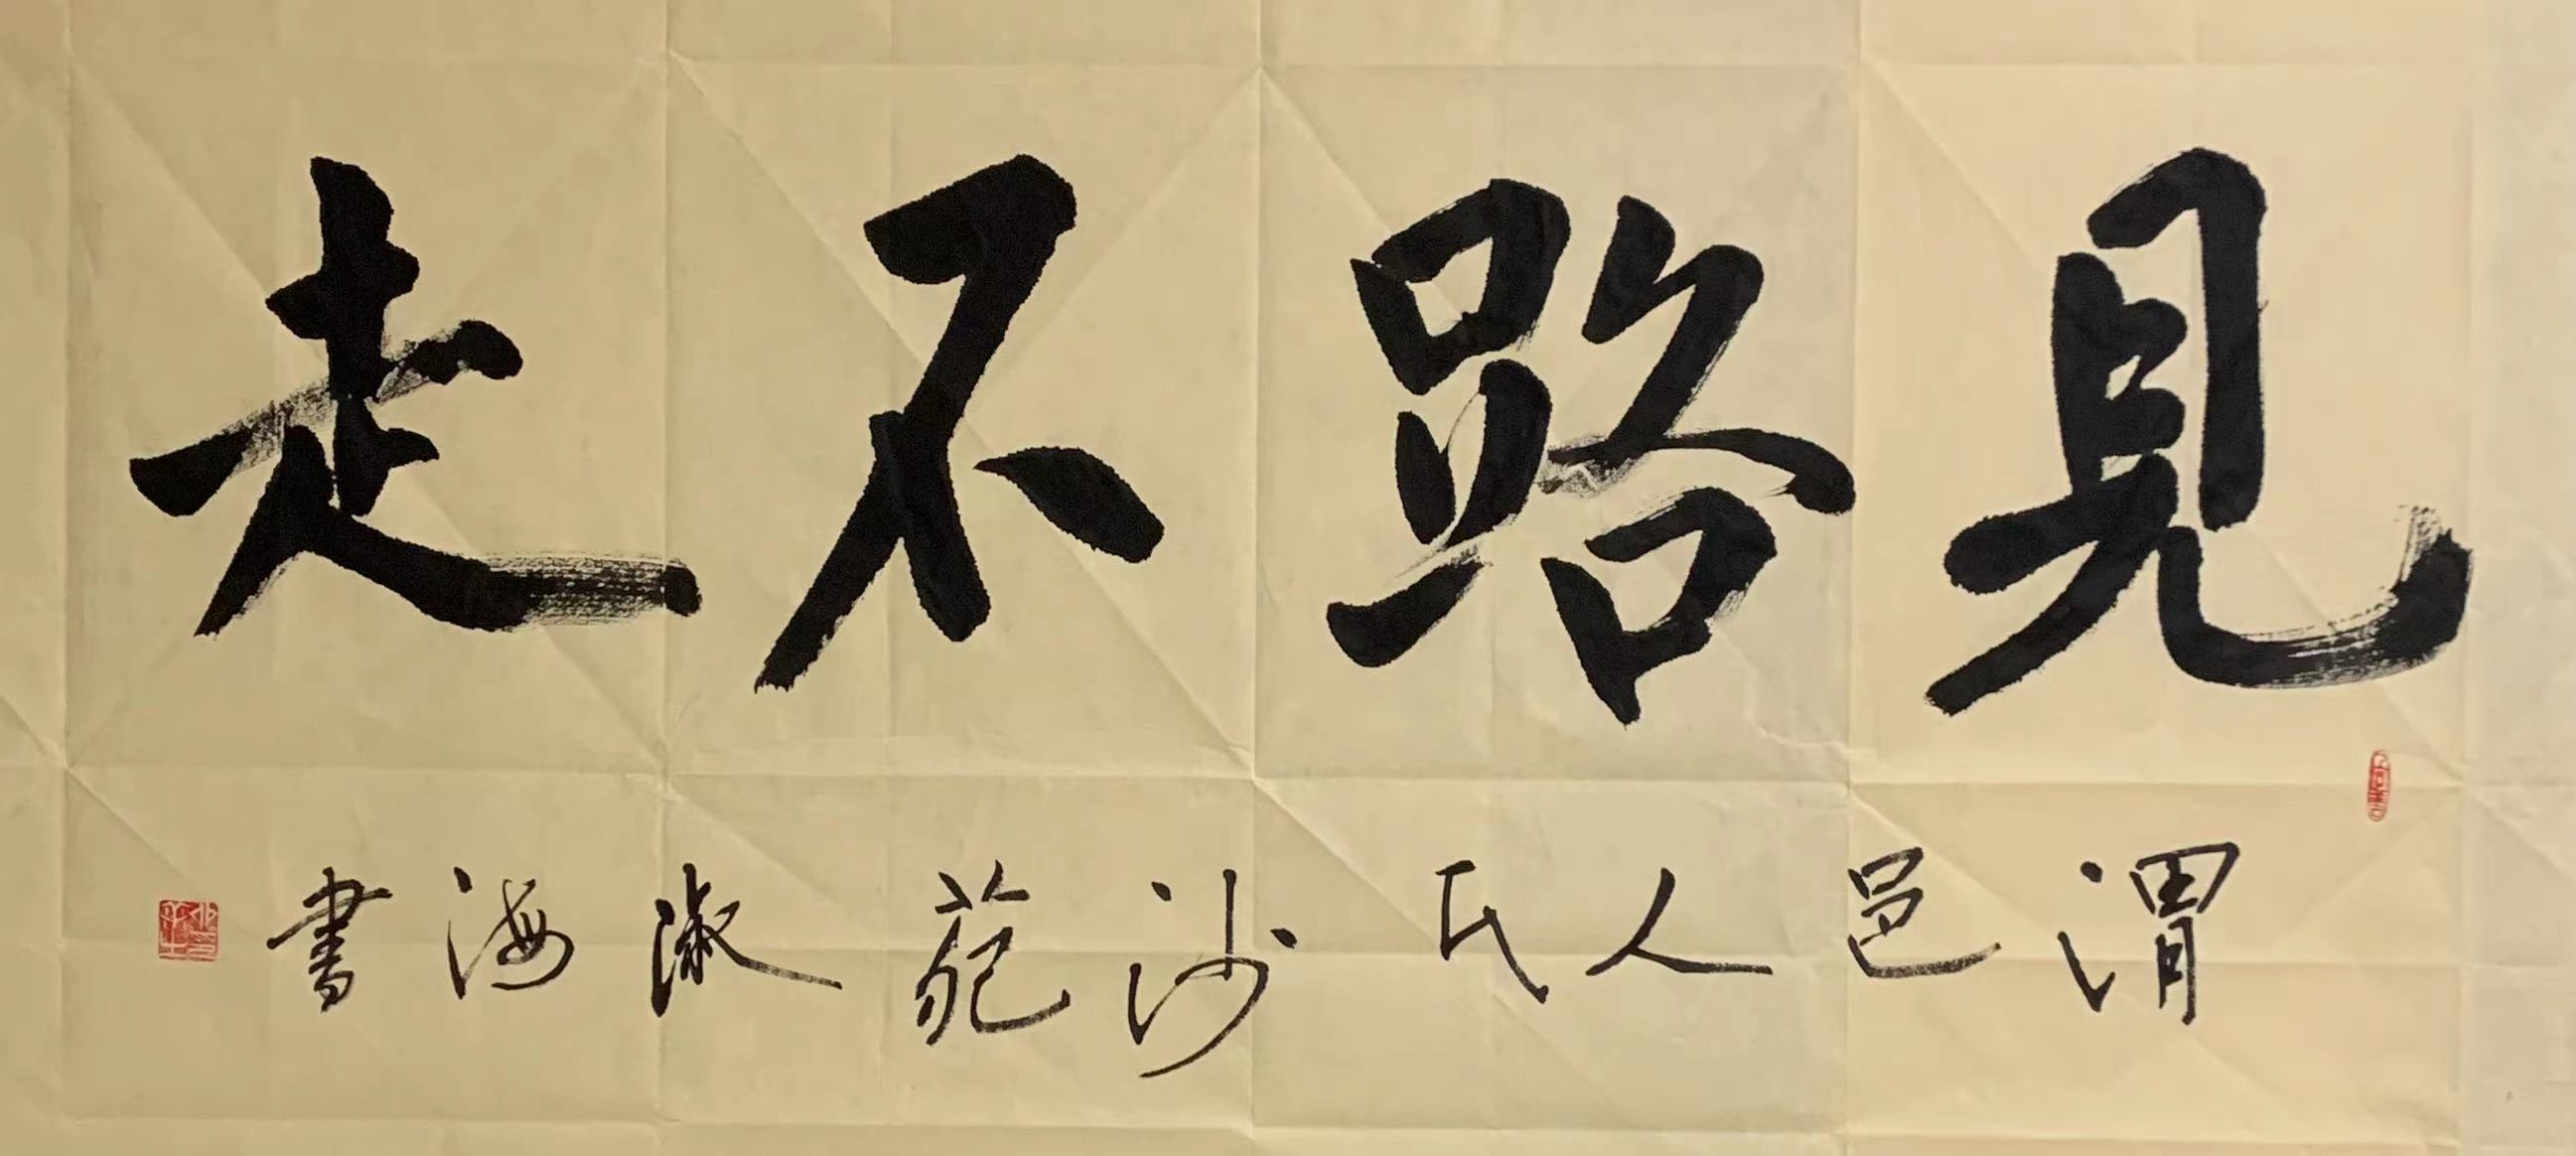 見路不走
渭邑人氏沙苑淑海書